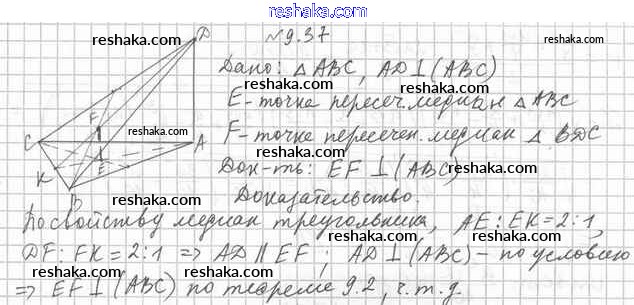 www.reshaka.com
№9.37
reshaka.com
reshaka.com
D
Дано: △ABC, AD⊥(ABC)
reshaka.com
E-точка пересеч. медиан △ABC
F
reshaka.com
F-точка пересечен. медиан △ BDC
C
A
reshaka.com
Док-ть: EF⊥(ABC)
K
E
B
reshaka.com
Доказательство.
По свойству медиан треугольника, AE:EK=2:1,
reshaka.com
reshaka.com
DF:FK=2:1 ⇒ AD∥EF; AD⊥(ABC)-по условию
reshaka.com
reshaka.com
⇒ EF⊥(ABC) по теореме 9.2, ч.т.д.
www.reshaka.com